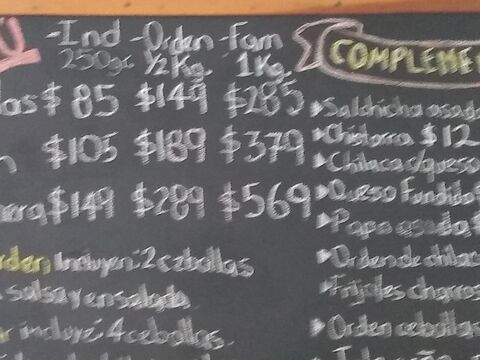 -Ind -Orden -Fam
250gr 1/2Kg. 1Kg.
$85 $149 $285
$105 $189 $379
$149 $289 $569
Incluyen: 2 cebollas
salsa y ensalada
incluye 4 cebollas.
COMPLEME
Salchicha asada
Chistorra $12
Chilaca c/queso
Queso Fundido
Papa asada
Orden de chilac
Frijoles charros
Orden cebollas